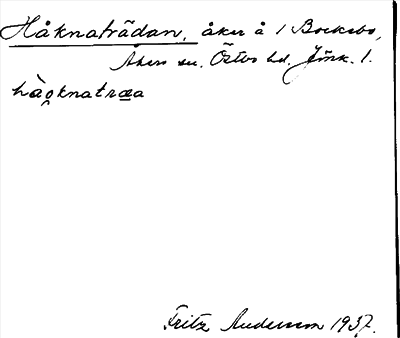 Håknaträdan, åker å 1 Bocksbo,
Åkers sn. Östbo hd. Jönk. l.
hàǫknatræa
Fritz Andersson 1937.